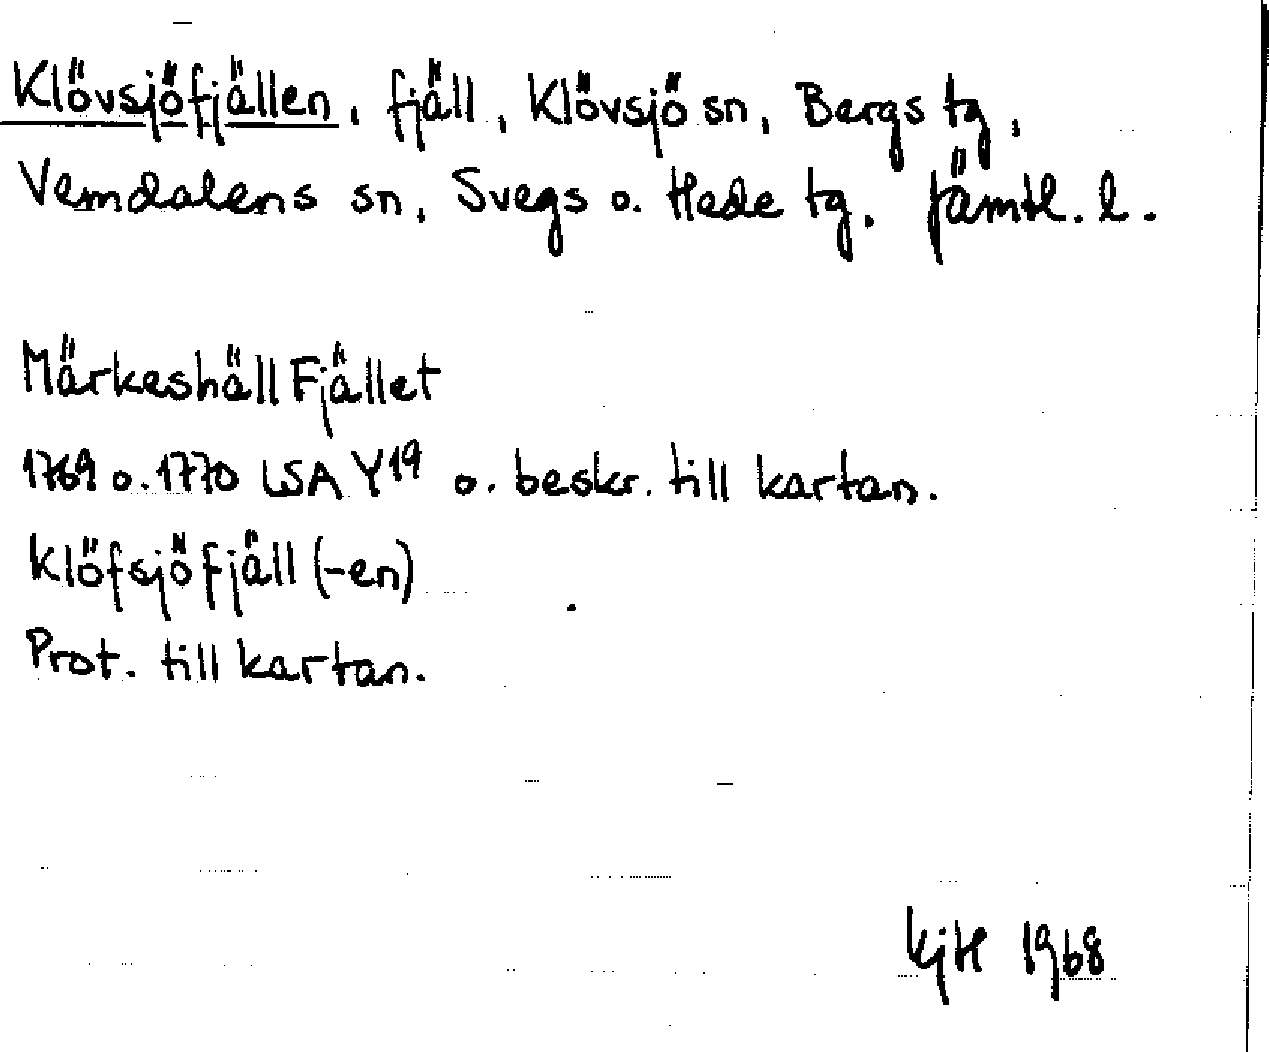 Klövsjöfjällen, fjäll, Klövsjö sn, Bergs tg,
Vemdalens sn, Svegs o. Hede tg. Jämtl. l.
Märkeshäll Fjället
1769 o. 1770 LSA Y19 o. beskr. till kartan.
Klöfsjöfjäll (-en)
Prot. till kartan.
KjH 1968